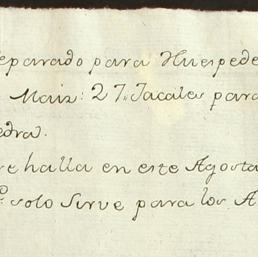 eparado para Huespede
Maiz: 27. Jacales para
edra.
se halla en este Agosta
solo Sirve para los A